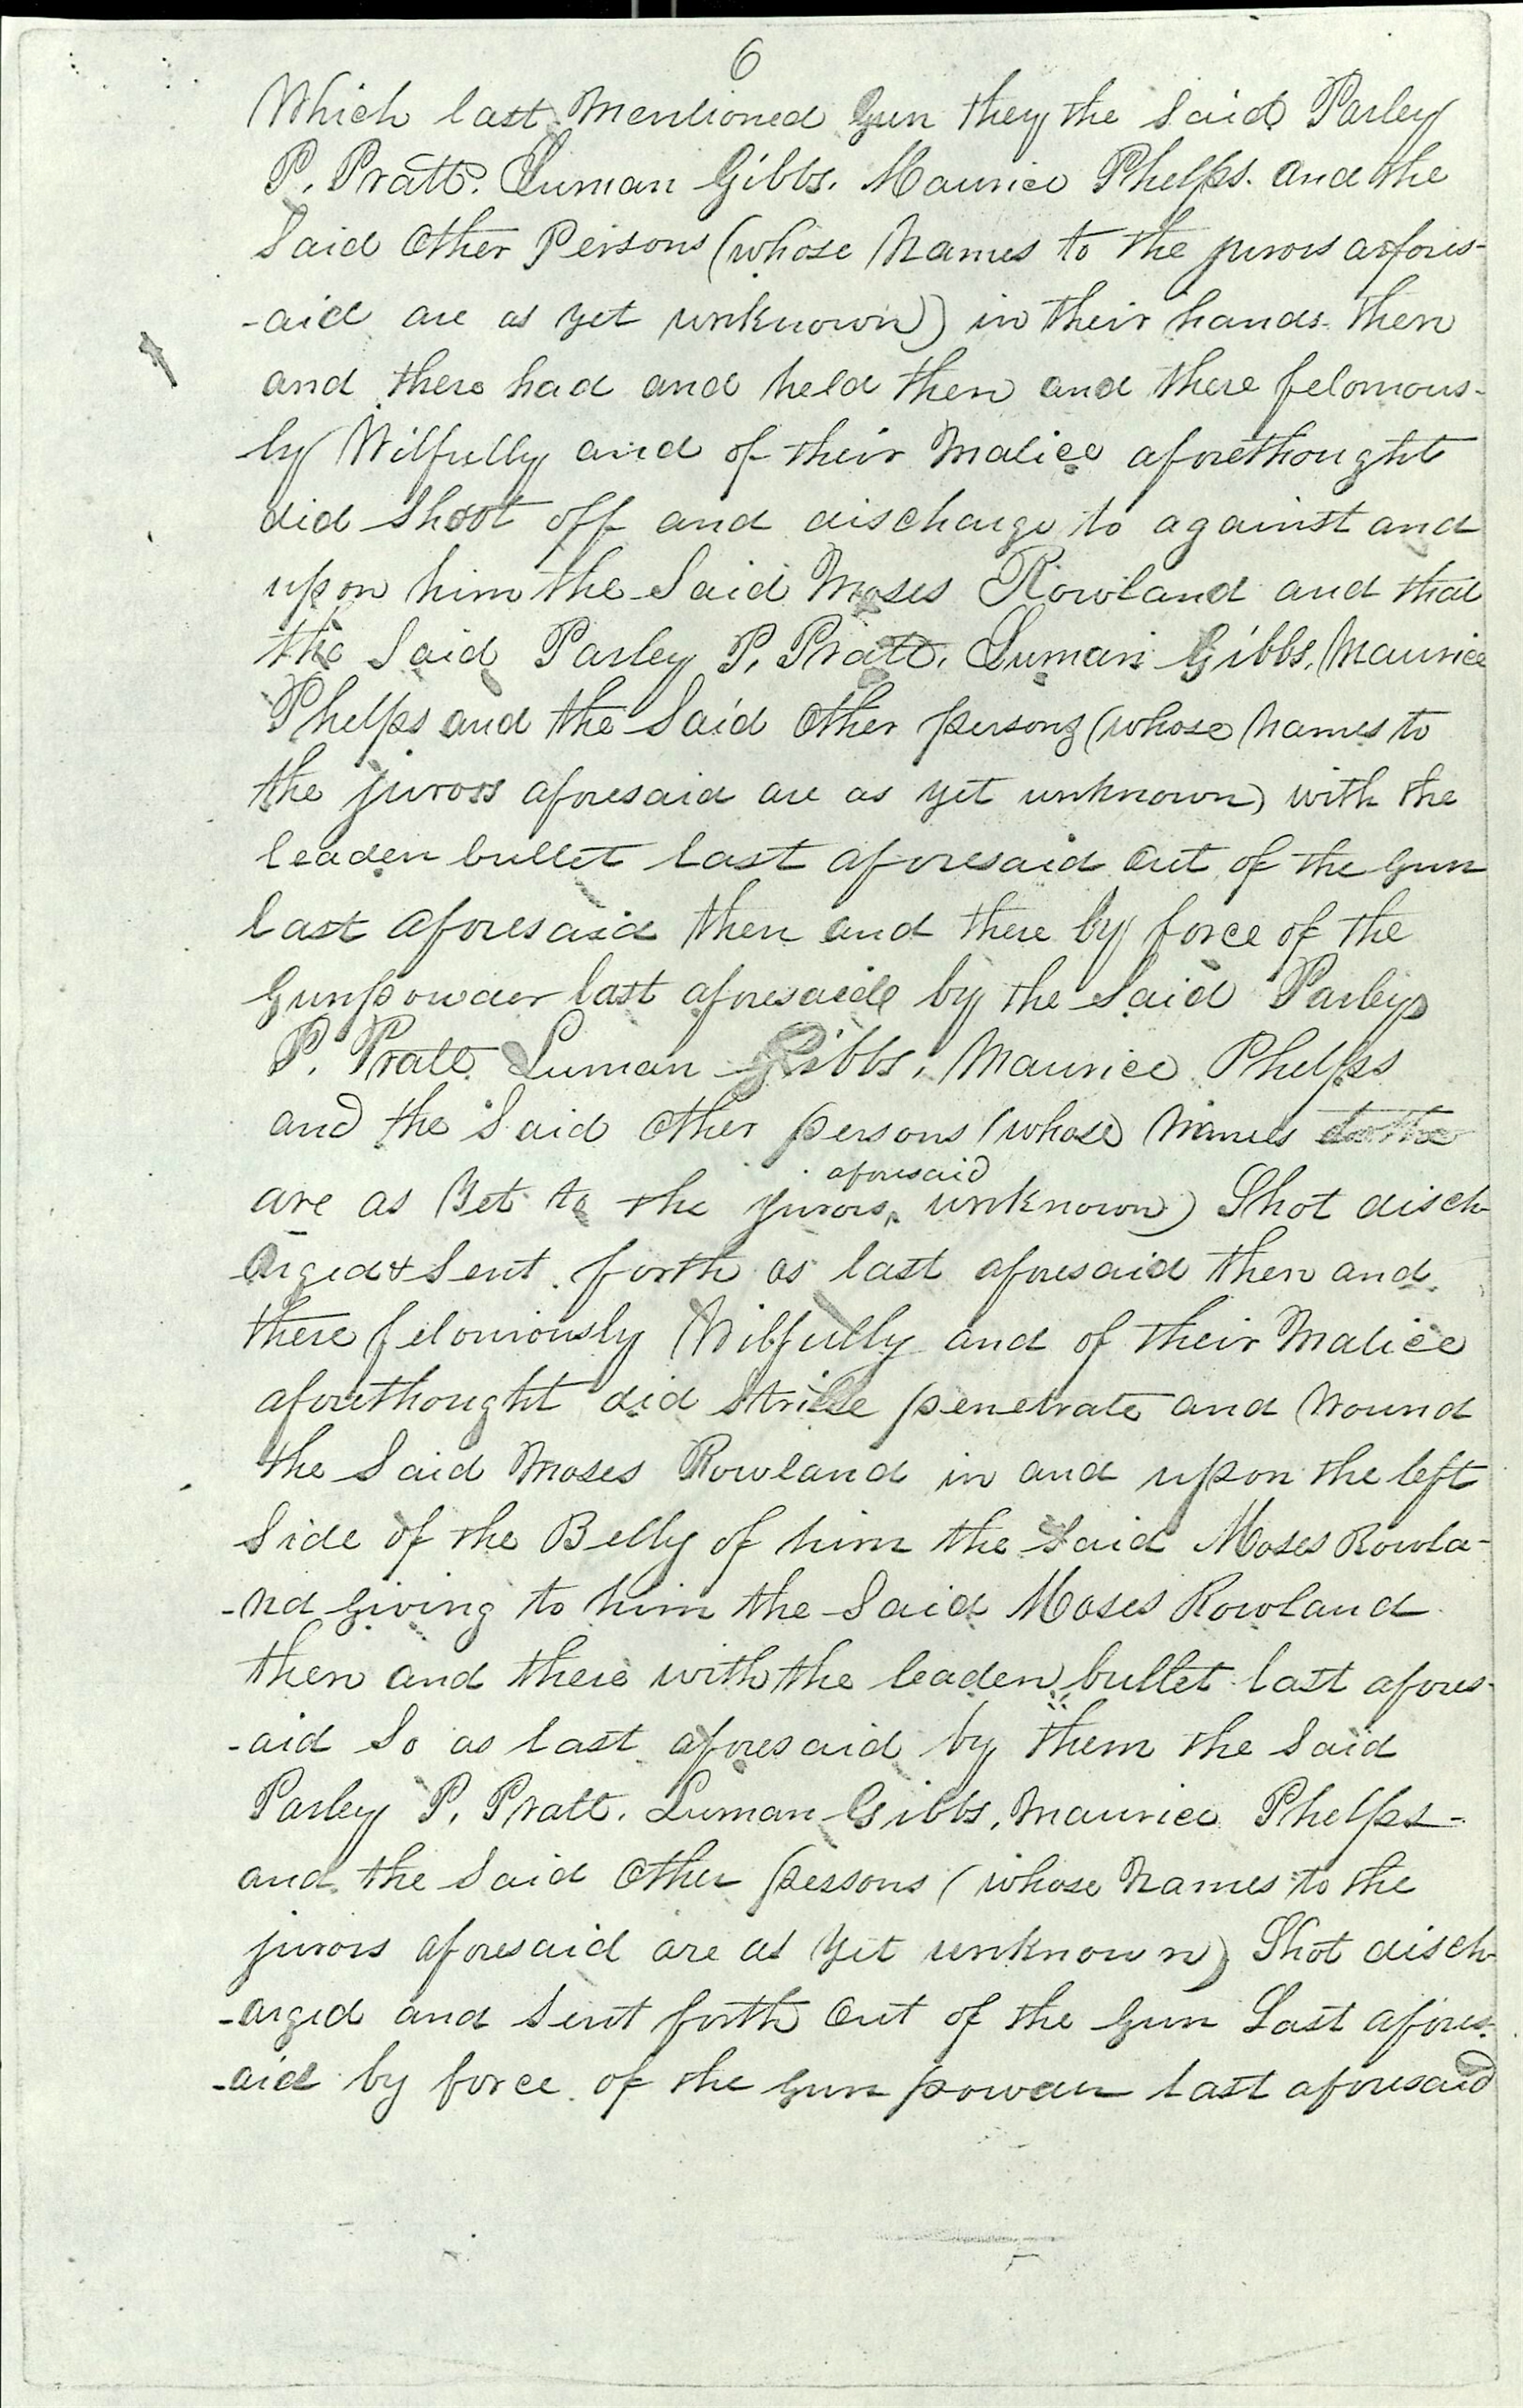 6
Which last Mentioned Gun they the Said Parley
P. Pratt. Luman Gibbs. Maurice Phelps. and the
Said Other Persons (whose Names to the jurors afores-
-aid are as yet unknown) in their hands then
and there had and held then and there felonious-
ly Wilfully and of their Malice aforethought
did Shoot off and discharge to against and
upon him the Said Moses Rowland and that
the Said Parley P. Pratt. Luman Gibbs, Maurice
Phelps and the Said Other persons (whose Names to
the jurors aforesaid are as yet unknown) with the
leaden bullet last aforesaid Out of the Gun
last aforesaid then and there by force of the
Gunpowder last aforesaid by the Said Parley
P. Pratt Luman Gibbs, Maurice Phelps
and the Said Other persons (whose Names to the
aforesaid
are as Yet to the jurors unknown) Shot disch-
arged & Sent forth as last aforesaid then and
there feloniously Wilfully and of their Malice
aforethought did Strike penetrate and Wound
the Said Moses Rowland in and upon the left
Side of the Belly of him the Said Moses Rowla-
-nd Giving to him the Said Moses Rowland
then and there with the leaden bullet last afores-
-aid So as last aforesaid by them the Said
Parley P. Pratt. Luman Gibbs, Maurice Phelps-
and the Said Other persons (whose Names to the
jurors aforesaid are as Yet unknown) Shot disch-
-arged and Sent forth Out of the Gun Last afores-
-aid by force of the Gun powder last aforesaid